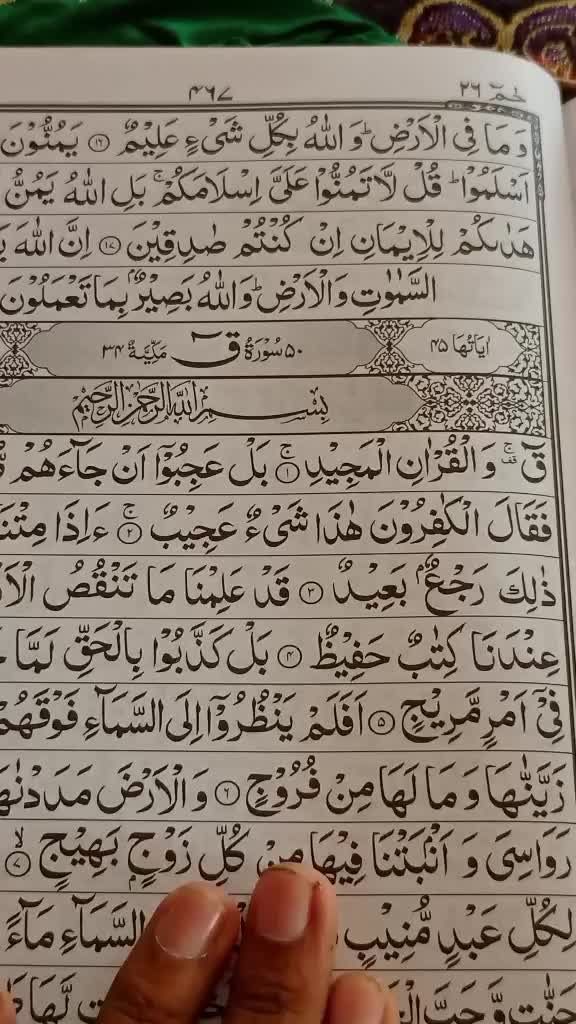 حٰمٓ ٢٦
٤٦٧
وَمَا فِی الْاَرْضِ ؕ وَاللّٰهُ بِكُلِّ شَیْءٍ عَلِیْمٌ ۝۱۶ یَمُنُّوْنَ
اَسْلَمُوْا ؕ قُلْ لَّا تَمُنُّوْا عَلَیَّ اِسْلَامَكُمْ ۚ بَلِ اللّٰهُ یَمُنُّ
هَدٰىكُمْ لِلْاِیْمَانِ اِنْ كُنْتُمْ صٰدِقِیْنَ ۝۱۷ اِنَّ اللّٰهَ
السَّمٰوٰتِ وَالْاَرْضِ ؕ وَاللّٰهُ بَصِیْرٌۢ بِمَا تَعْمَلُوْنَ
اٰیَاتُهَا ۴۵
۵۰ سُوْرَةُ قٓ مَكِّیَّةٌ ۳۴
بِسْمِ اللّٰهِ الرَّحْمٰنِ الرَّحِیْمِ
قٓ ۚ۫ وَالْقُرْاٰنِ الْمَجِیْدِ ۝۱ۚ بَلْ عَجِبُوْۤا اَنْ جَآءَهُمْ
فَقَالَ الْكٰفِرُوْنَ هٰذَا شَیْءٌ عَجِیْبٌ ۝۲ۚ ءَاِذَا مِتْنَا
ذٰلِكَ رَجْعٌۢ بَعِیْدٌ ۝۳ قَدْ عَلِمْنَا مَا تَنْقُصُ
عِنْدَنَا كِتٰبٌ حَفِیْظٌ ۝۴ بَلْ كَذَّبُوْا بِالْحَقِّ لَمَّا
فِیْۤ اَمْرٍ مَّرِیْجٍ ۝۵ اَفَلَمْ یَنْظُرُوْۤا اِلَی السَّمَآءِ فَوْقَهُمْ
زَیَّنّٰهَا وَمَا لَهَا مِنْ فُرُوْجٍ ۝۶ وَالْاَرْضَ مَدَدْنٰهَا
رَوَاسِیَ وَاَنْۢبَتْنَا فِیْهَا مِنْ كُلِّ زَوْجٍۭ بَهِیْجٍ ۝۷ۙ
لِكُلِّ عَبْدٍ مُّنِیْبٍ السَّمَآءِ مَآءً
جَنّٰتٍ وَّحَبَّ